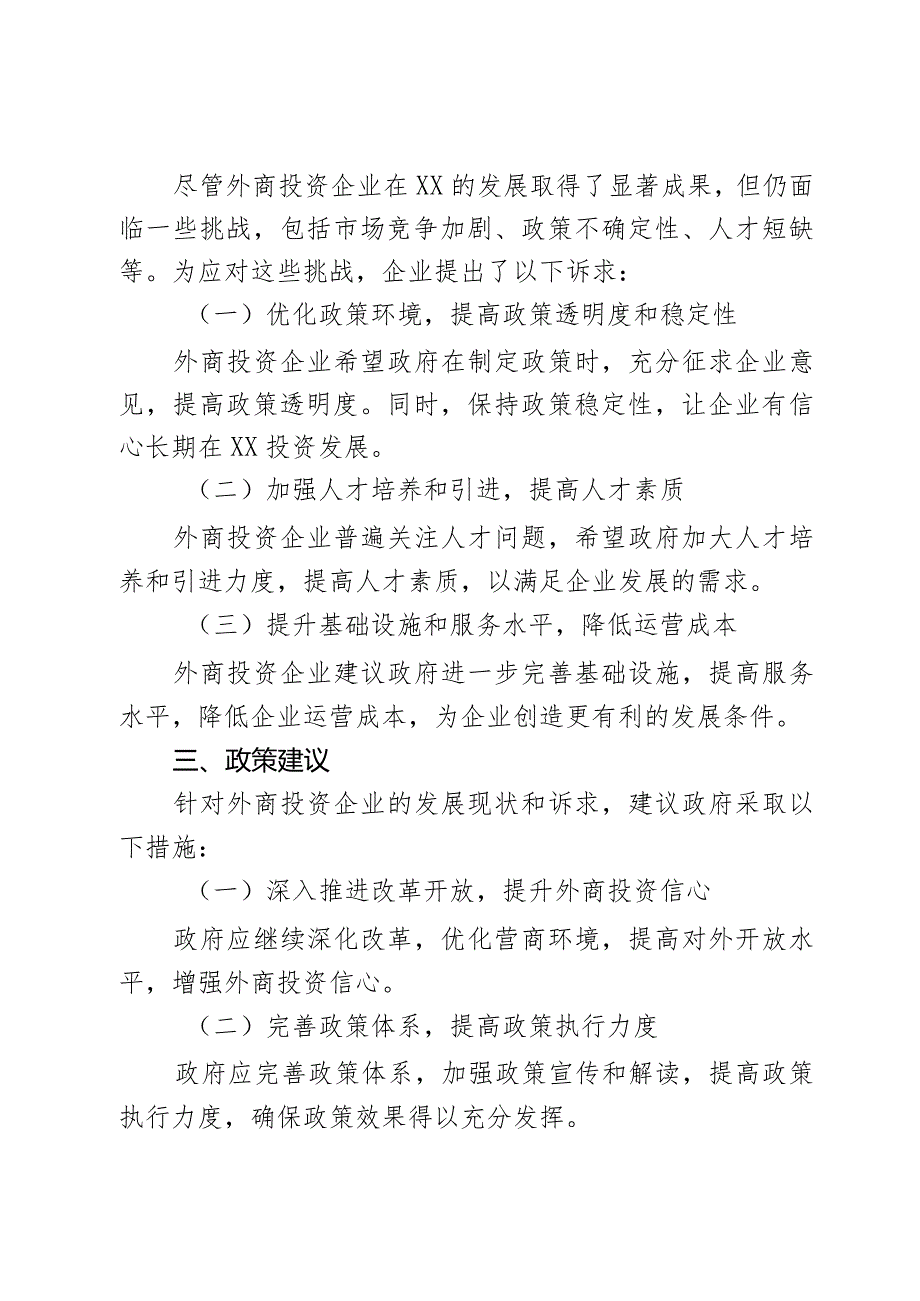 尽管外商投资企业在XX的发展取得了显著成果，但仍面
临一些挑战，包括市场竞争加剧、政策不确定性、人才短缺
等。为应对这些挑战，企业提出了以下诉求：
（一）优化政策环境，提高政策透明度和稳定性
外商投资企业希望政府在制定政策时，充分征求企业意
见，提高政策透明度。同时，保持政策稳定性，让企业有信
心长期在XX投资发展。
（二）加强人才培养和引进，提高人才素质
外商投资企业普遍关注人才问题，希望政府加大人才培
养和引进力度，提高人才素质，以满足企业发展的需求。
（三）提升基础设施和服务水平，降低运营成本
外商投资企业建议政府进一步完善基础设施，提高服务
水平，降低企业运营成本，为企业创造更有利的发展条件。
三、政策建议
针对外商投资企业的发展现状和诉求，建议政府采取以
下措施：
（一）深入推进改革开放，提升外商投资信心
政府应继续深化改革，优化营商环境，提高对外开放水
平，增强外商投资信心。
（二）完善政策体系，提高政策执行力度
政府应完善政策体系，加强政策宣传和解读，提高政策
执行力度，确保政策效果得以充分发挥。